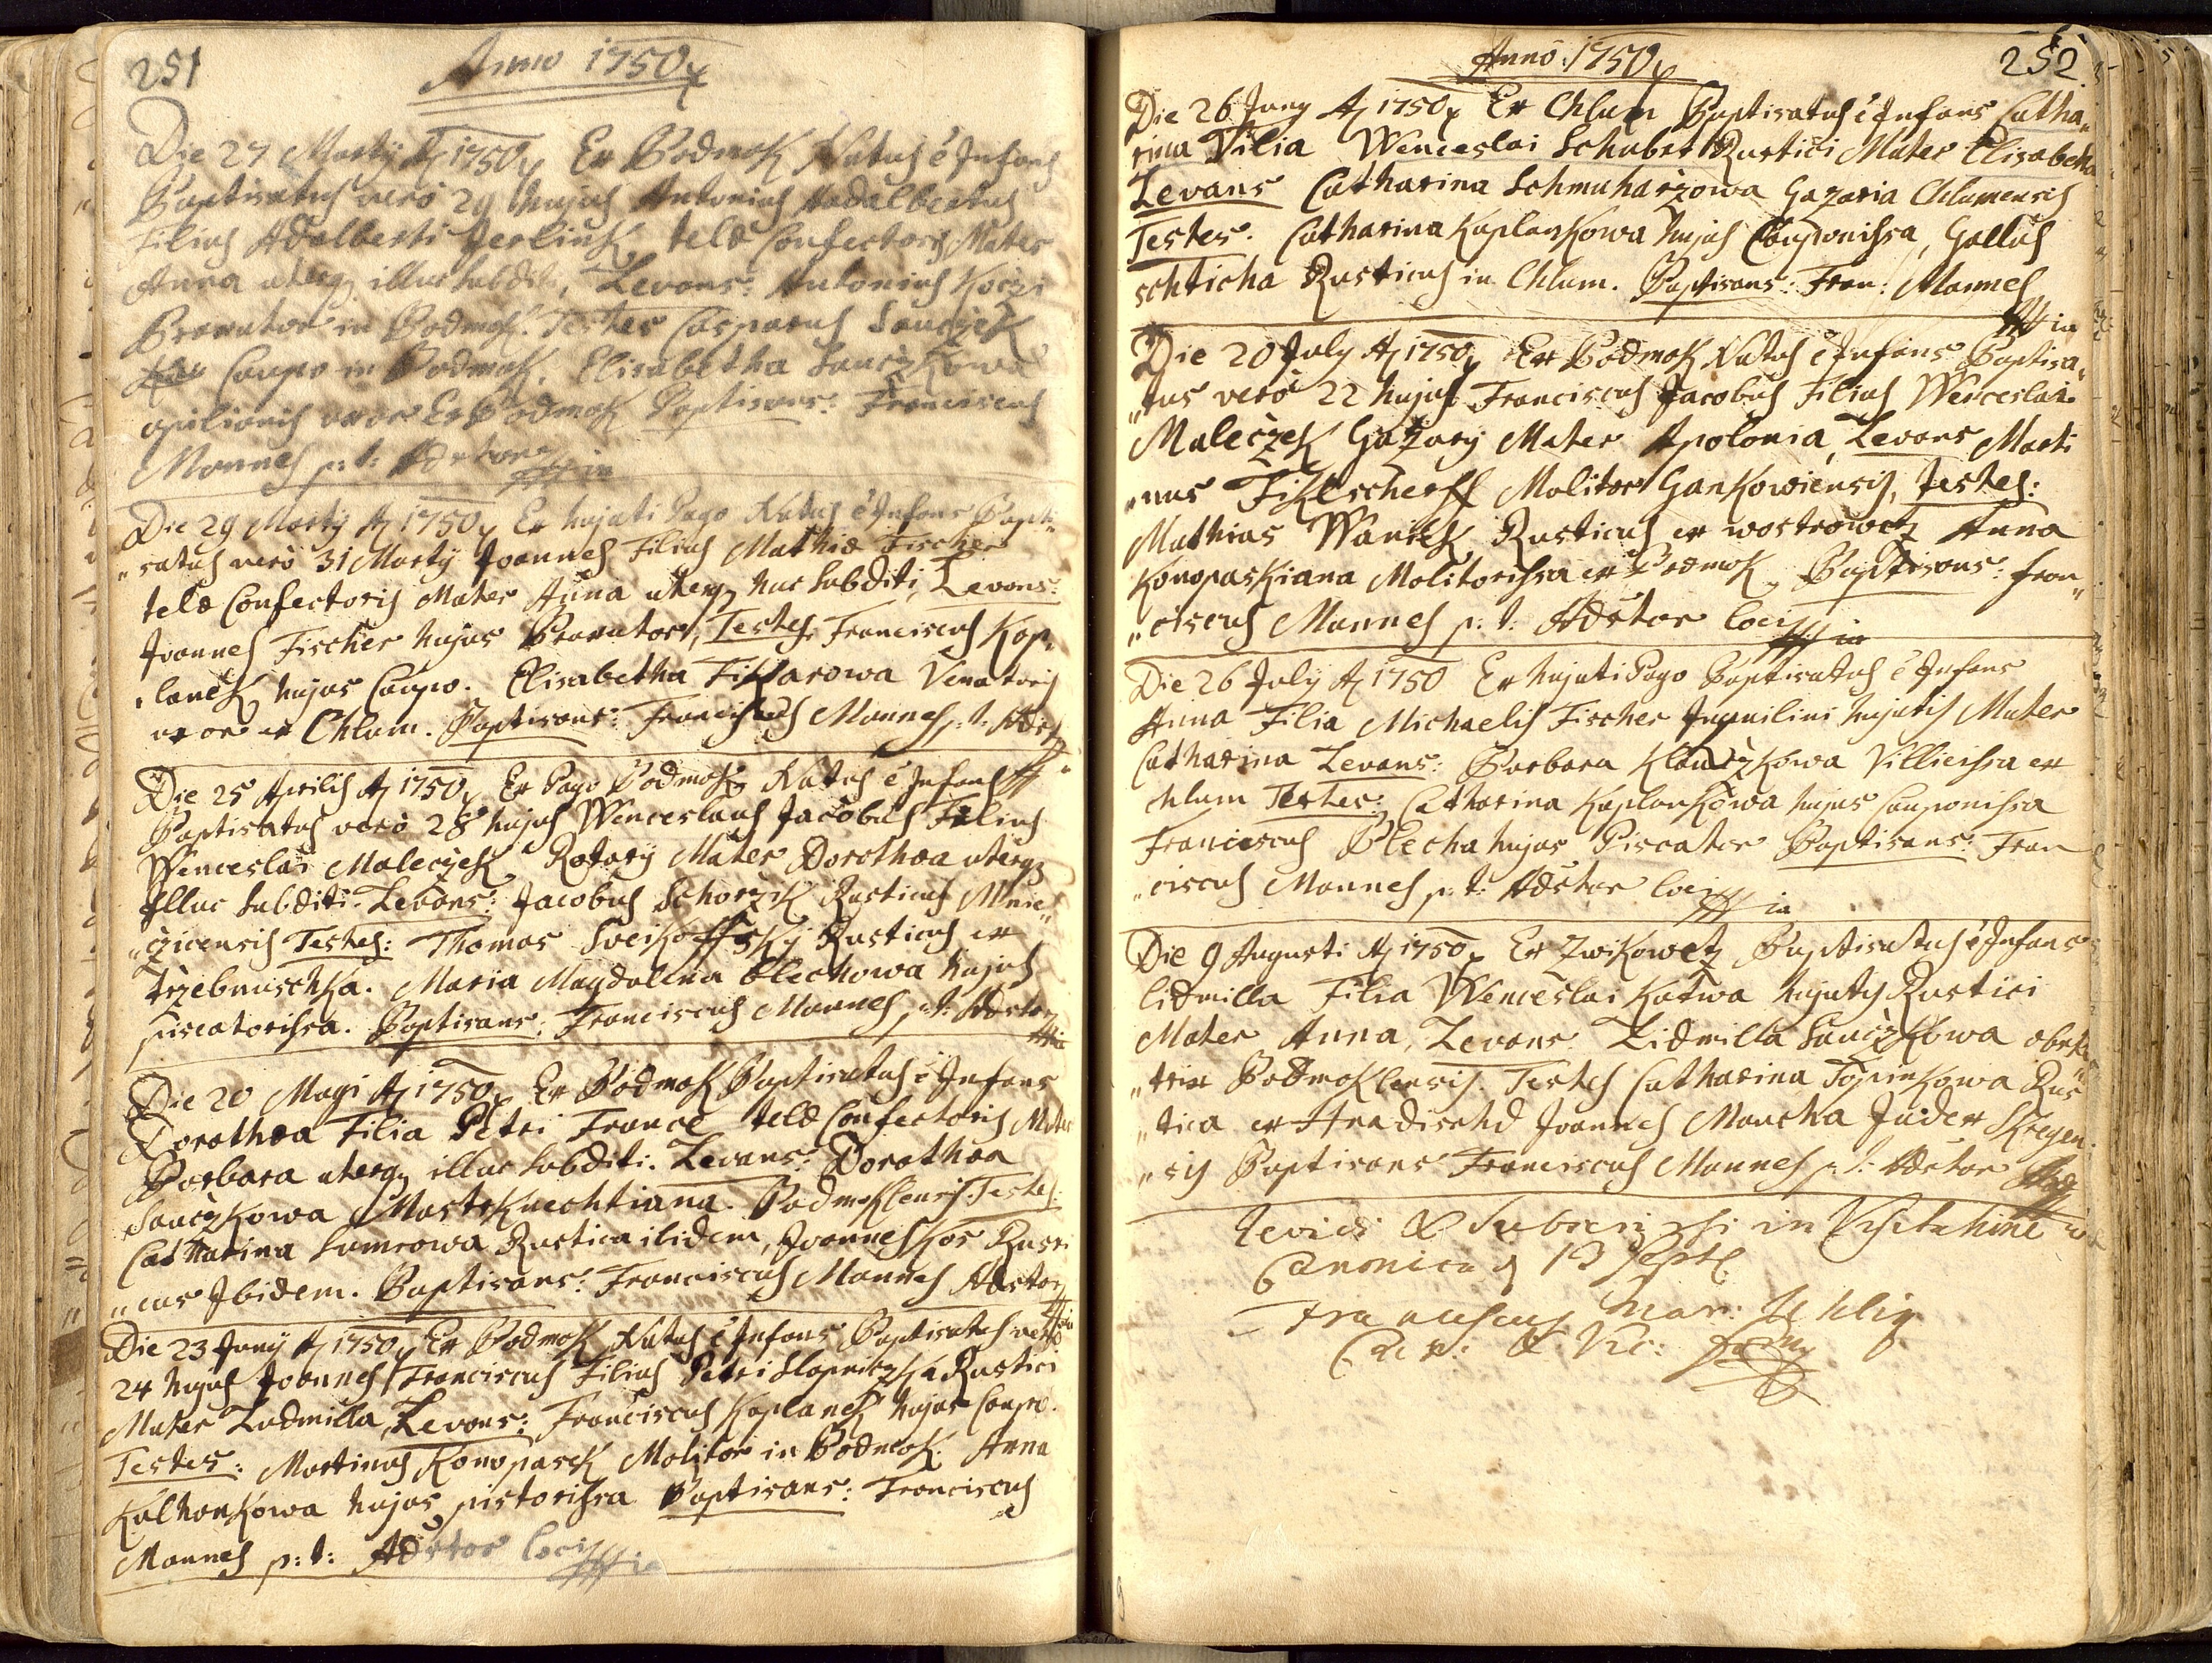 251
Anno 1750
Die 27 Martÿ A 1750 Ex Podmok Natus ē Infans
Baptisatus vero 29 hujus Antonius Adalbertus
Filius Adalberti Jerlink telæ Confectoris Mater
Anna uterq illuc subditi, Levans: Antonius Koczi
Braxator in Podmok. Testes Casparus Sauczek
Caupo in Podmok. Elisabetha Sauczkowa
opilionis uxor Ex Podmok Baptisans: Franciscus
Mannes p: t: Adstor
Die 29 Martÿ A 1750 Ex hujati Pago Natus ē Infans Bapti
"satus vero 31 Martÿ Joannes Filius Mathiæ Fischer
telæ Confectoris Mater Anna uterq huc subditi, Levans:
Joannes Fischer hujas Braxator, Testes: Franciscus Kop
lanek hujas Caupo. Elisabetha Fikzarowa Venatoris
uxor ex Chlum. Baptisans: Franciscus Mannes p: t: Adst
Die 25 Aprilis A 1750 Ex Pago Podmok Natus ē Infans
Baptisatus vero 28 hujus Wenceslaus Jacobus Filius
Wenceslai Maleczek Rotarÿ Mater Dorothea uterq
Illuc subditi. Levans: Jacobus Schorzik Rusticus Mnie
"czicensis Testes: Thomas Sveikoffsky Rusticus ex
trzebnuschka. Maria Magdalena Blechowa hujus
piscatorissa. Baptisans: Franciscus Mannes p: t: Adstor
Die 20 Maji A 1750 Ex Podmok Baptisatus ē Infans
Dorothea Filia Petri France telæ Confectoris Mater
Barbara uterq illuc subditi. Levans: Dorothea
Sauczkowa Mastknechtiana Podmoklensis. Testes:
Catharina Samcowa Rustica ibidem, Joannes Kos Rusti
"cus Ibidem. Baptisans: Franciscus Mannes Adstor
Die 23 Junÿ A 1750 Ex Podmok Natus ē Infans Baptisatus vero
24 hujus Joannes Franciscus Filius Petri Slapniczka Rustici
Mater Ludmilla, Levans: Franciscus Kaplanek hujas Caupo.
Testes: Martinus Konopasek Molitor in Podmok. Anna
Kalhonkowa hujas pistorissa Baptisans: Franciscus
Mannes p: t: Adstor loci
252
Anno 1750
Die 26 Juny A 1750 Ex Chlum Baptisatus ē Infans Catha
rina Filia Wenceslai Schubrt Rustici Mater Elisabetha
Levans Catharina Schmuharzowa Gazaria Chlumensis
Testes: Catharina Kaplankowa hujas Cauponissa, Gallus
schticha Rusticus in Chlum. Baptisans: Fran: Mannes
Die 20 July A 1750 Ex Podmok Natus ē Infans Baptisa
"tus vero 22 hujus Franciscus Jacobus Filius Wenceslai
Maleczek Gazarÿ Mater Apolonia, Levans Marti
"nus Fiklscherff Molitor Gankowiensis, Testes:
Mathias Wanick Rusticus ex wostrowetz Anna
Konopaskiana Molitorissa ex Podmok, Baptisans: Fran
"ciscus Mannes p: t: Adstor loci
Die 26 July A 1750 Ex hujati Pago Baptisatus ē Infans
Anna Filia Michaelis Fischer Inquilini hujatis Mater
Catharina Levans: Barbara Klauczkowa Villicissa ex
chlum Testes: Catharina Kaplankowa hujas Cauponissa
Franciscus Blecha hujas Piscator Baptisans: Fran
"ciscus Mannes p: t: Adstor loci
Die 9 Augusti A 1750 Ex Zwikowetz Baptisatus ē Infans
Lidmilla Filia Wenceslai Katwa hujatÿ Rustici
Mater Anna, Levans Lidmilla Sauczkowa obste
"trix Podmoklensis. Testes Catharina Topinkowa Rus
"tica ex Hradischd Joannes Maucha Judex Skregen
"sis Baptisans Franciscus Mannes p: t: Adstor
Revidi & Subscripsi in Visitatione
Canonica 13 Septb
Franciscus Mar: Uhlig
Can: & Vic: